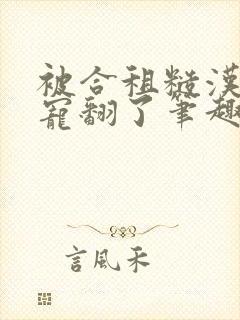 被合租糙漢
寵翻了筆趣
言風禾